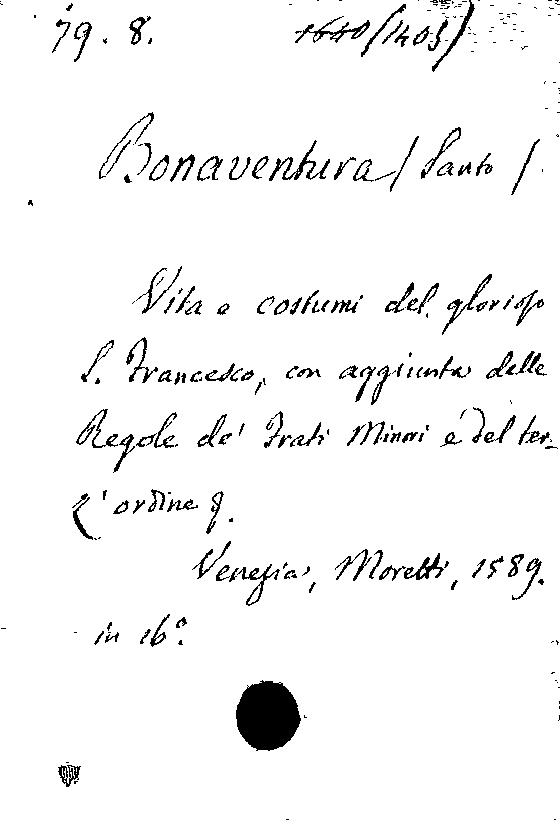 79. 8. 1640/1405)
Bonaventura / Santo /.
Vita e costumi del glorioso
S. Francesco, con aggiunta delle
Regole de' Frati Minori e del ter-
z' ordine &.
Venezia, Moretti, 1589.
in 16º.